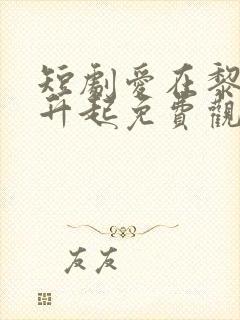 短劇愛在黎
升起免費觀
友友